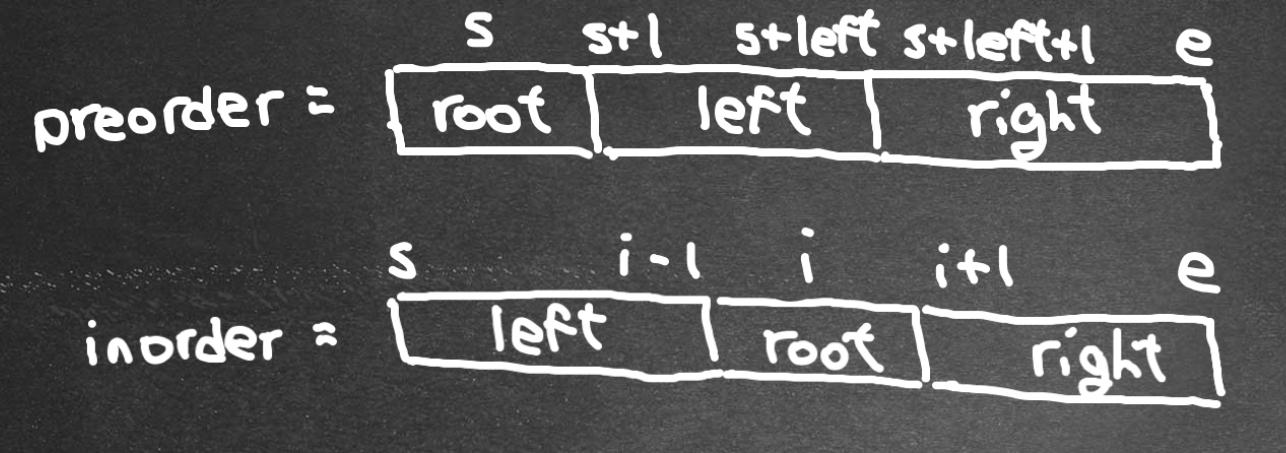 s s+1 s+left s+left+1 e
preorder = root left right
s i-1 i i+1 e
inorder = left root right